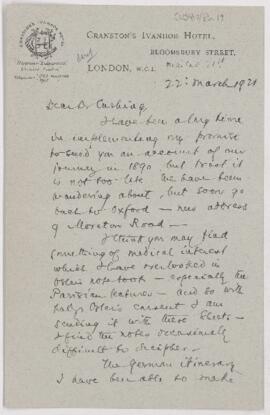 CUS417/82.19
CRANSTON'S IVANHOE HOTEL,
BLOOMSBURY STREET,
LONDON, W.C.1.
22: March 1921
Dear Dr Cushing
I have been a long time
in implementing my promise
to send you an account of our
journey in 1890 but trust it
is not too late. We have been
wandering about, but soon go
on to Oxford — new address
9 Moreton Road —
I think you may find
something of medical interest
which I have overlooked in
Osler's note book — especially the
Parisian lectures — and so with
Lady Osler's consent I am
sending it with these sheets —
I find the notes occasionally
difficult to decipher —
The German itinerary
I have been able to make